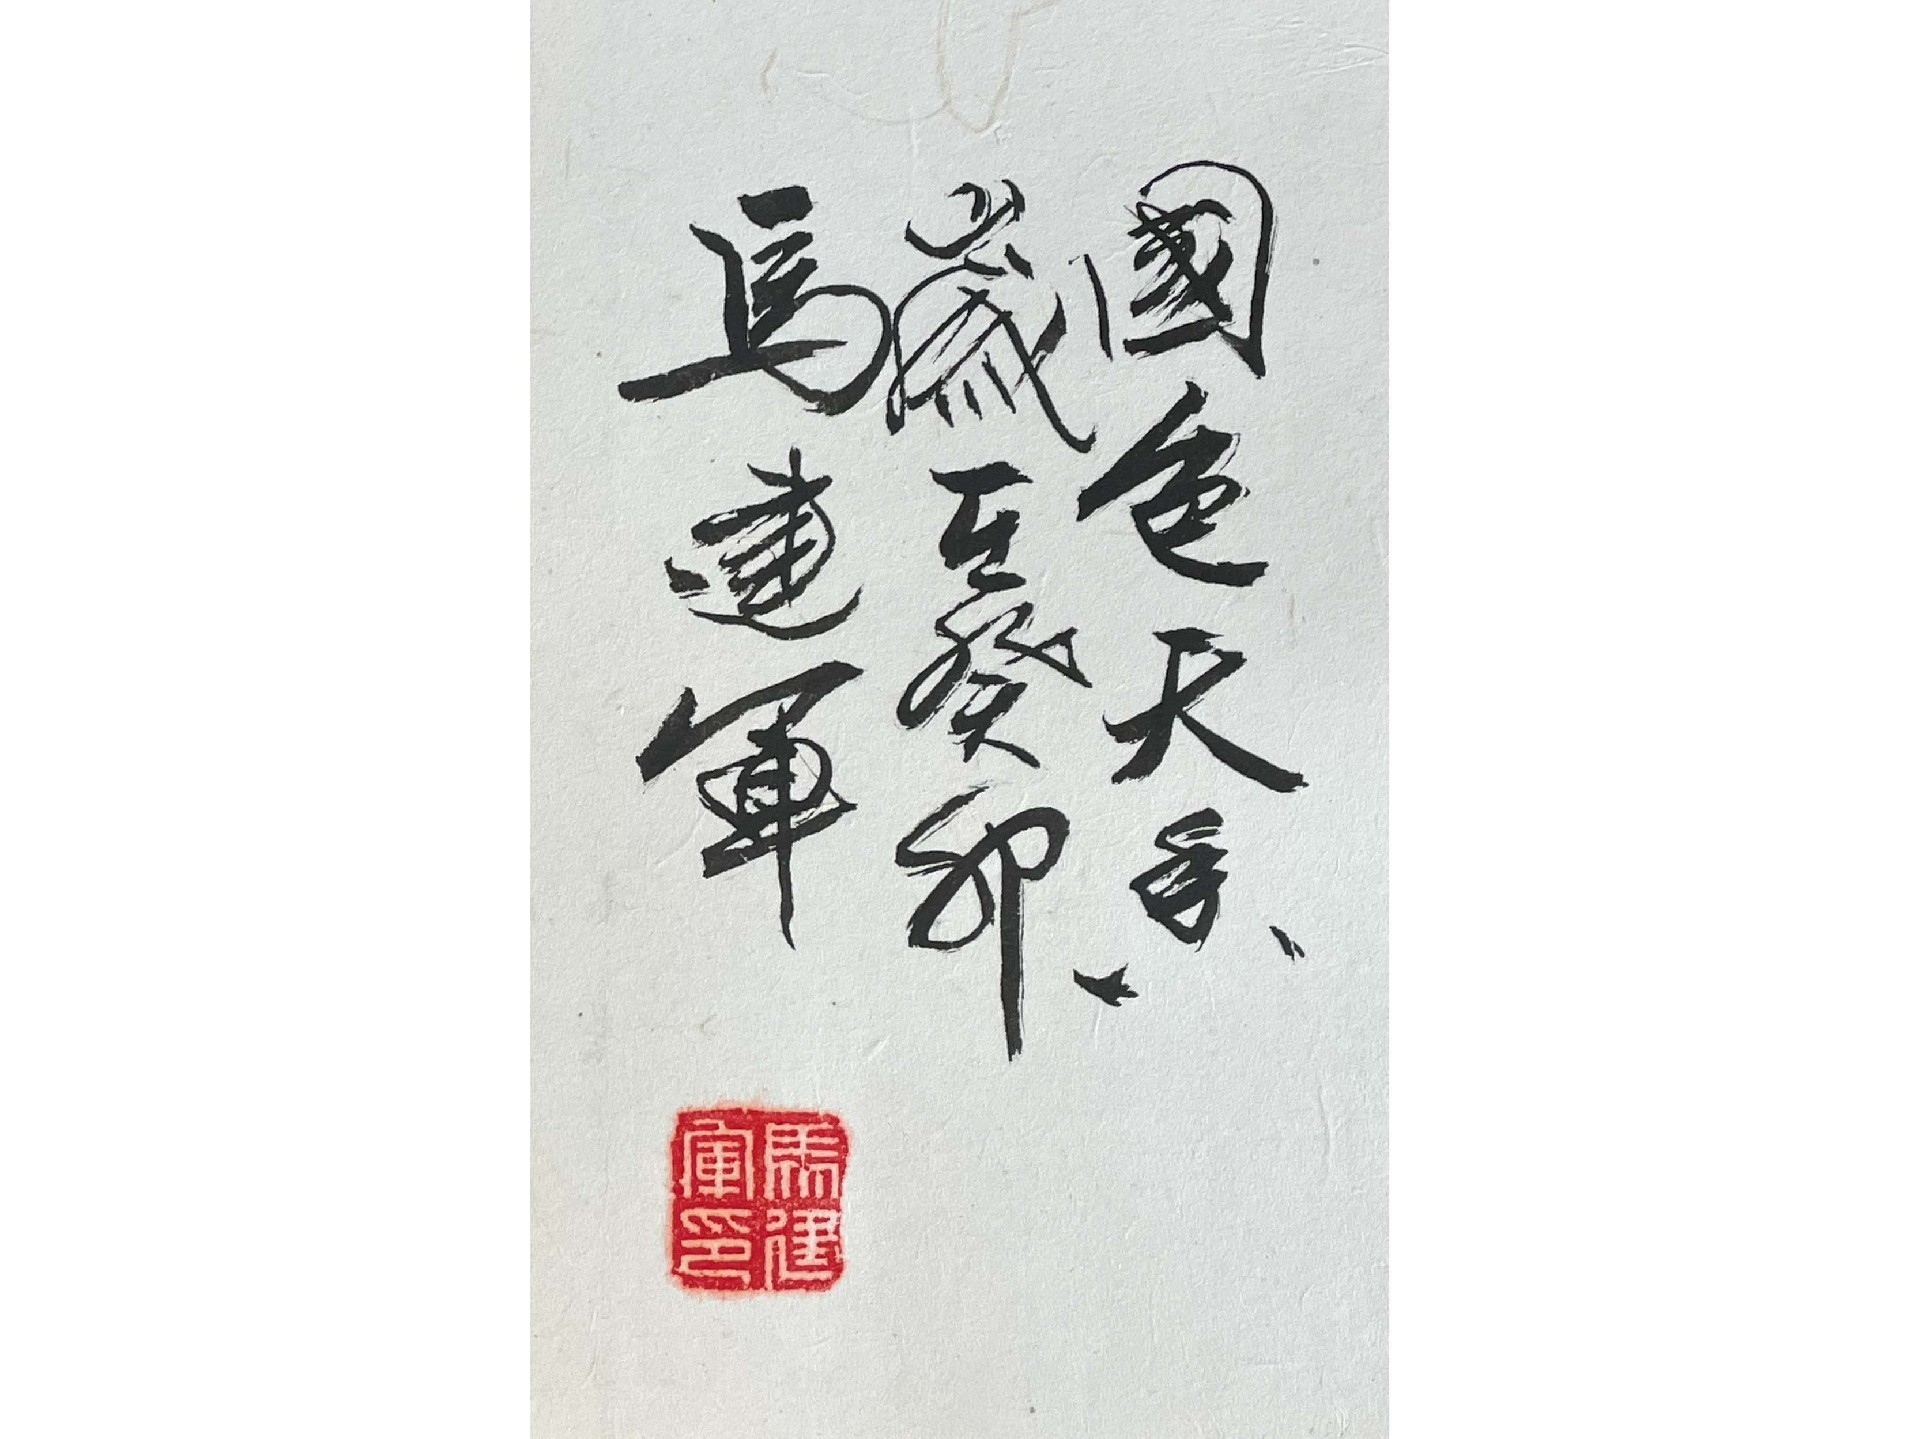 國色天香
歲在癸卯
馬建軍
馬建軍印